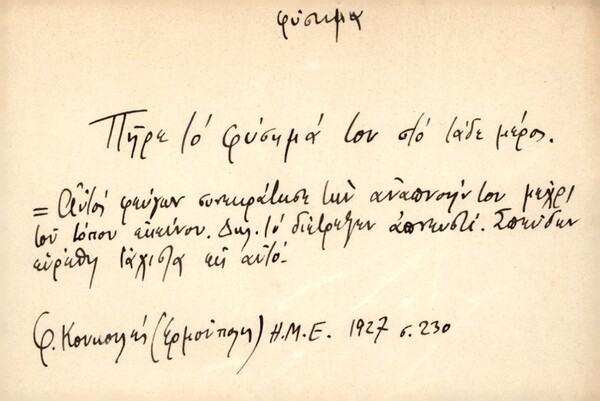 φύσημα
Πῆρε τό φύσημά του στό τάδε μέρος.
= Αὐτός φεύγων συνεκράτησε τήν ἀναπνοήν του μέχρι
τοῦ τόπου ἐκείνου. Δηλ. τό διέτρεξεν ἀπνευστί. Σπεύδων
εὑρέθη τάχιστα εἰς αὐτό.
Φ. Κουκουλές (Ἑρμούπολη) Η.Μ.Ε. 1927 σ. 230